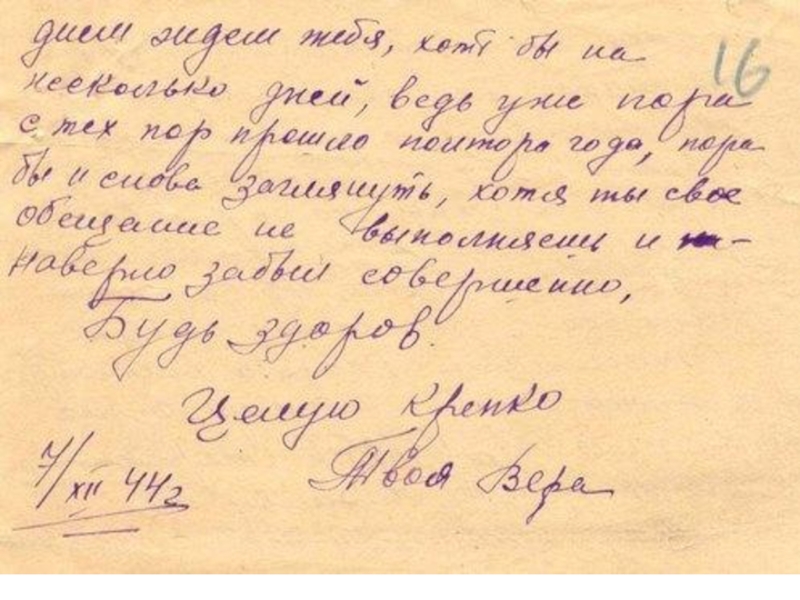 днем ждем тебя, хотя бы на
16
несколько дней, ведь уже пора
с тех пор прошло полтора года, пора
бы и снова заглянуть, хотя ты свое
обещание не выполняешь и
наверно забыл совершенно,
Будь здоров.
Целую крепко
Твоя Вера
7/XII 44г